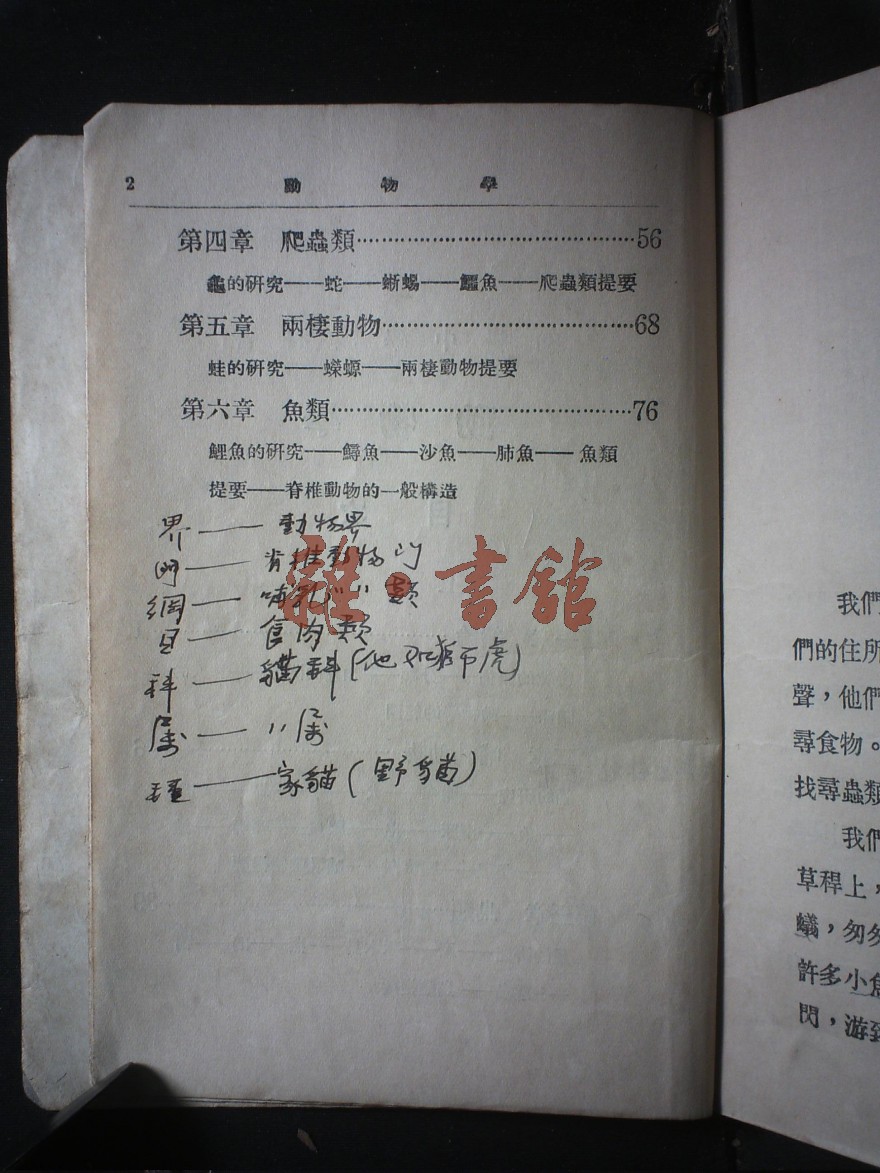 2 動物學
第四章 爬蟲類……………………………………56
龜的研究——蛇——蜥蜴——鱷魚——爬蟲類提要
第五章 兩棲動物…………………………………68
蛙的研究——蠑螈——兩棲動物提要
第六章 魚類………………………………………76
鯉魚的研究——鱘魚——沙魚——肺魚——魚類
提要——脊椎動物的一般構造
界——動物界
門——脊椎動物門
綱——哪乳〃〃類
目——食肉類
科——貓科(他如獅而虎)
属——〃属
種——家貓(野貓)
雜·書館
我們
們的住所
聲，他們
尋食物。
找尋蟲類
我們
草稈上，
蟻，匆匆
許多小魚
閃，游到